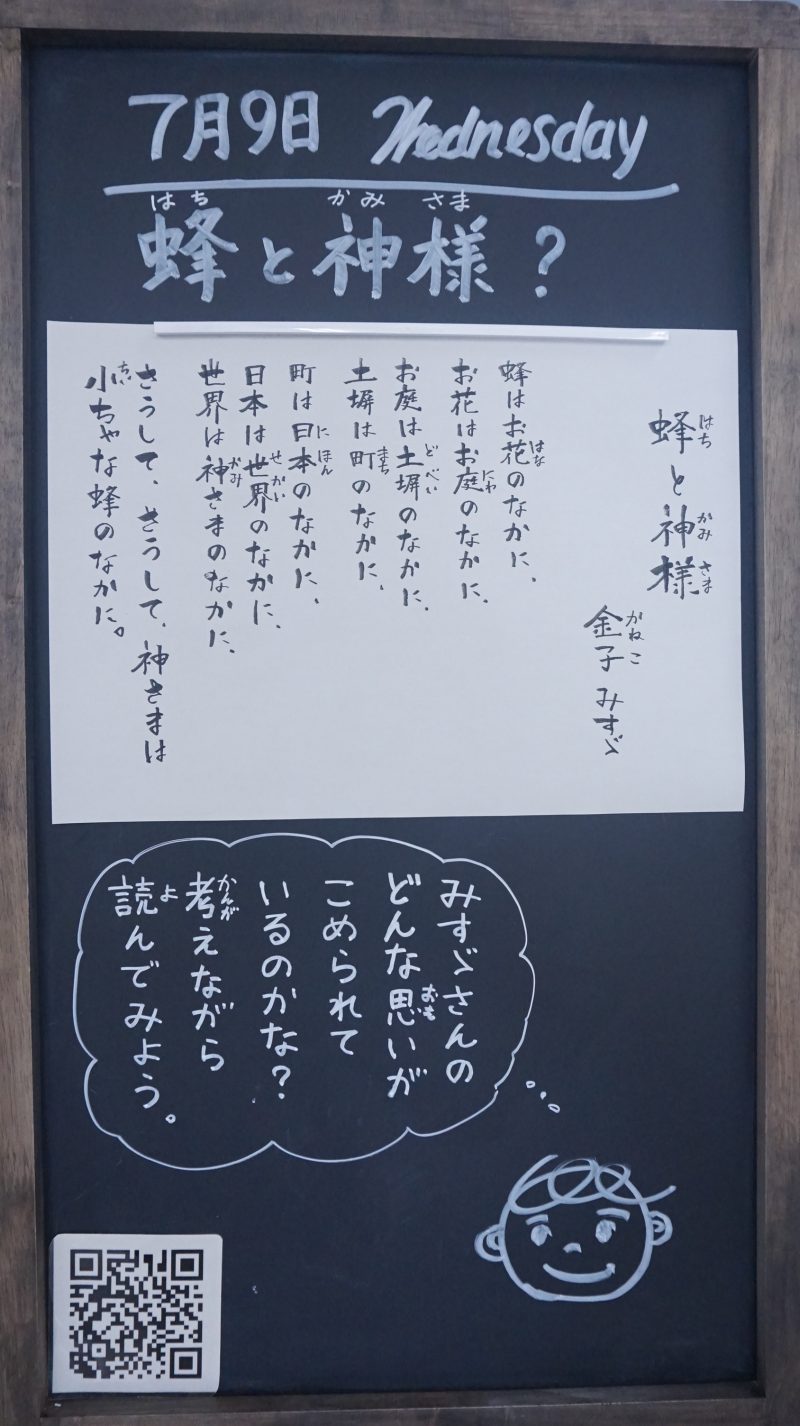 7月9日 Wednesday
蜂と神様？
蜂と神様
金子みすゞ
蜂はお花のなかに、
お花はお庭のなかに、
お庭は土塀のなかに、
土塀は町のなかに、
町は日本のなかに、
日本は世界のなかに、
世界は神さまのなかに、
さうして、さうして、神さまは
小ちゃな蜂のなかに。
みすゞさんの
どんな思いが
こめられて
いるのかな？
考えながら
読んでみよう。